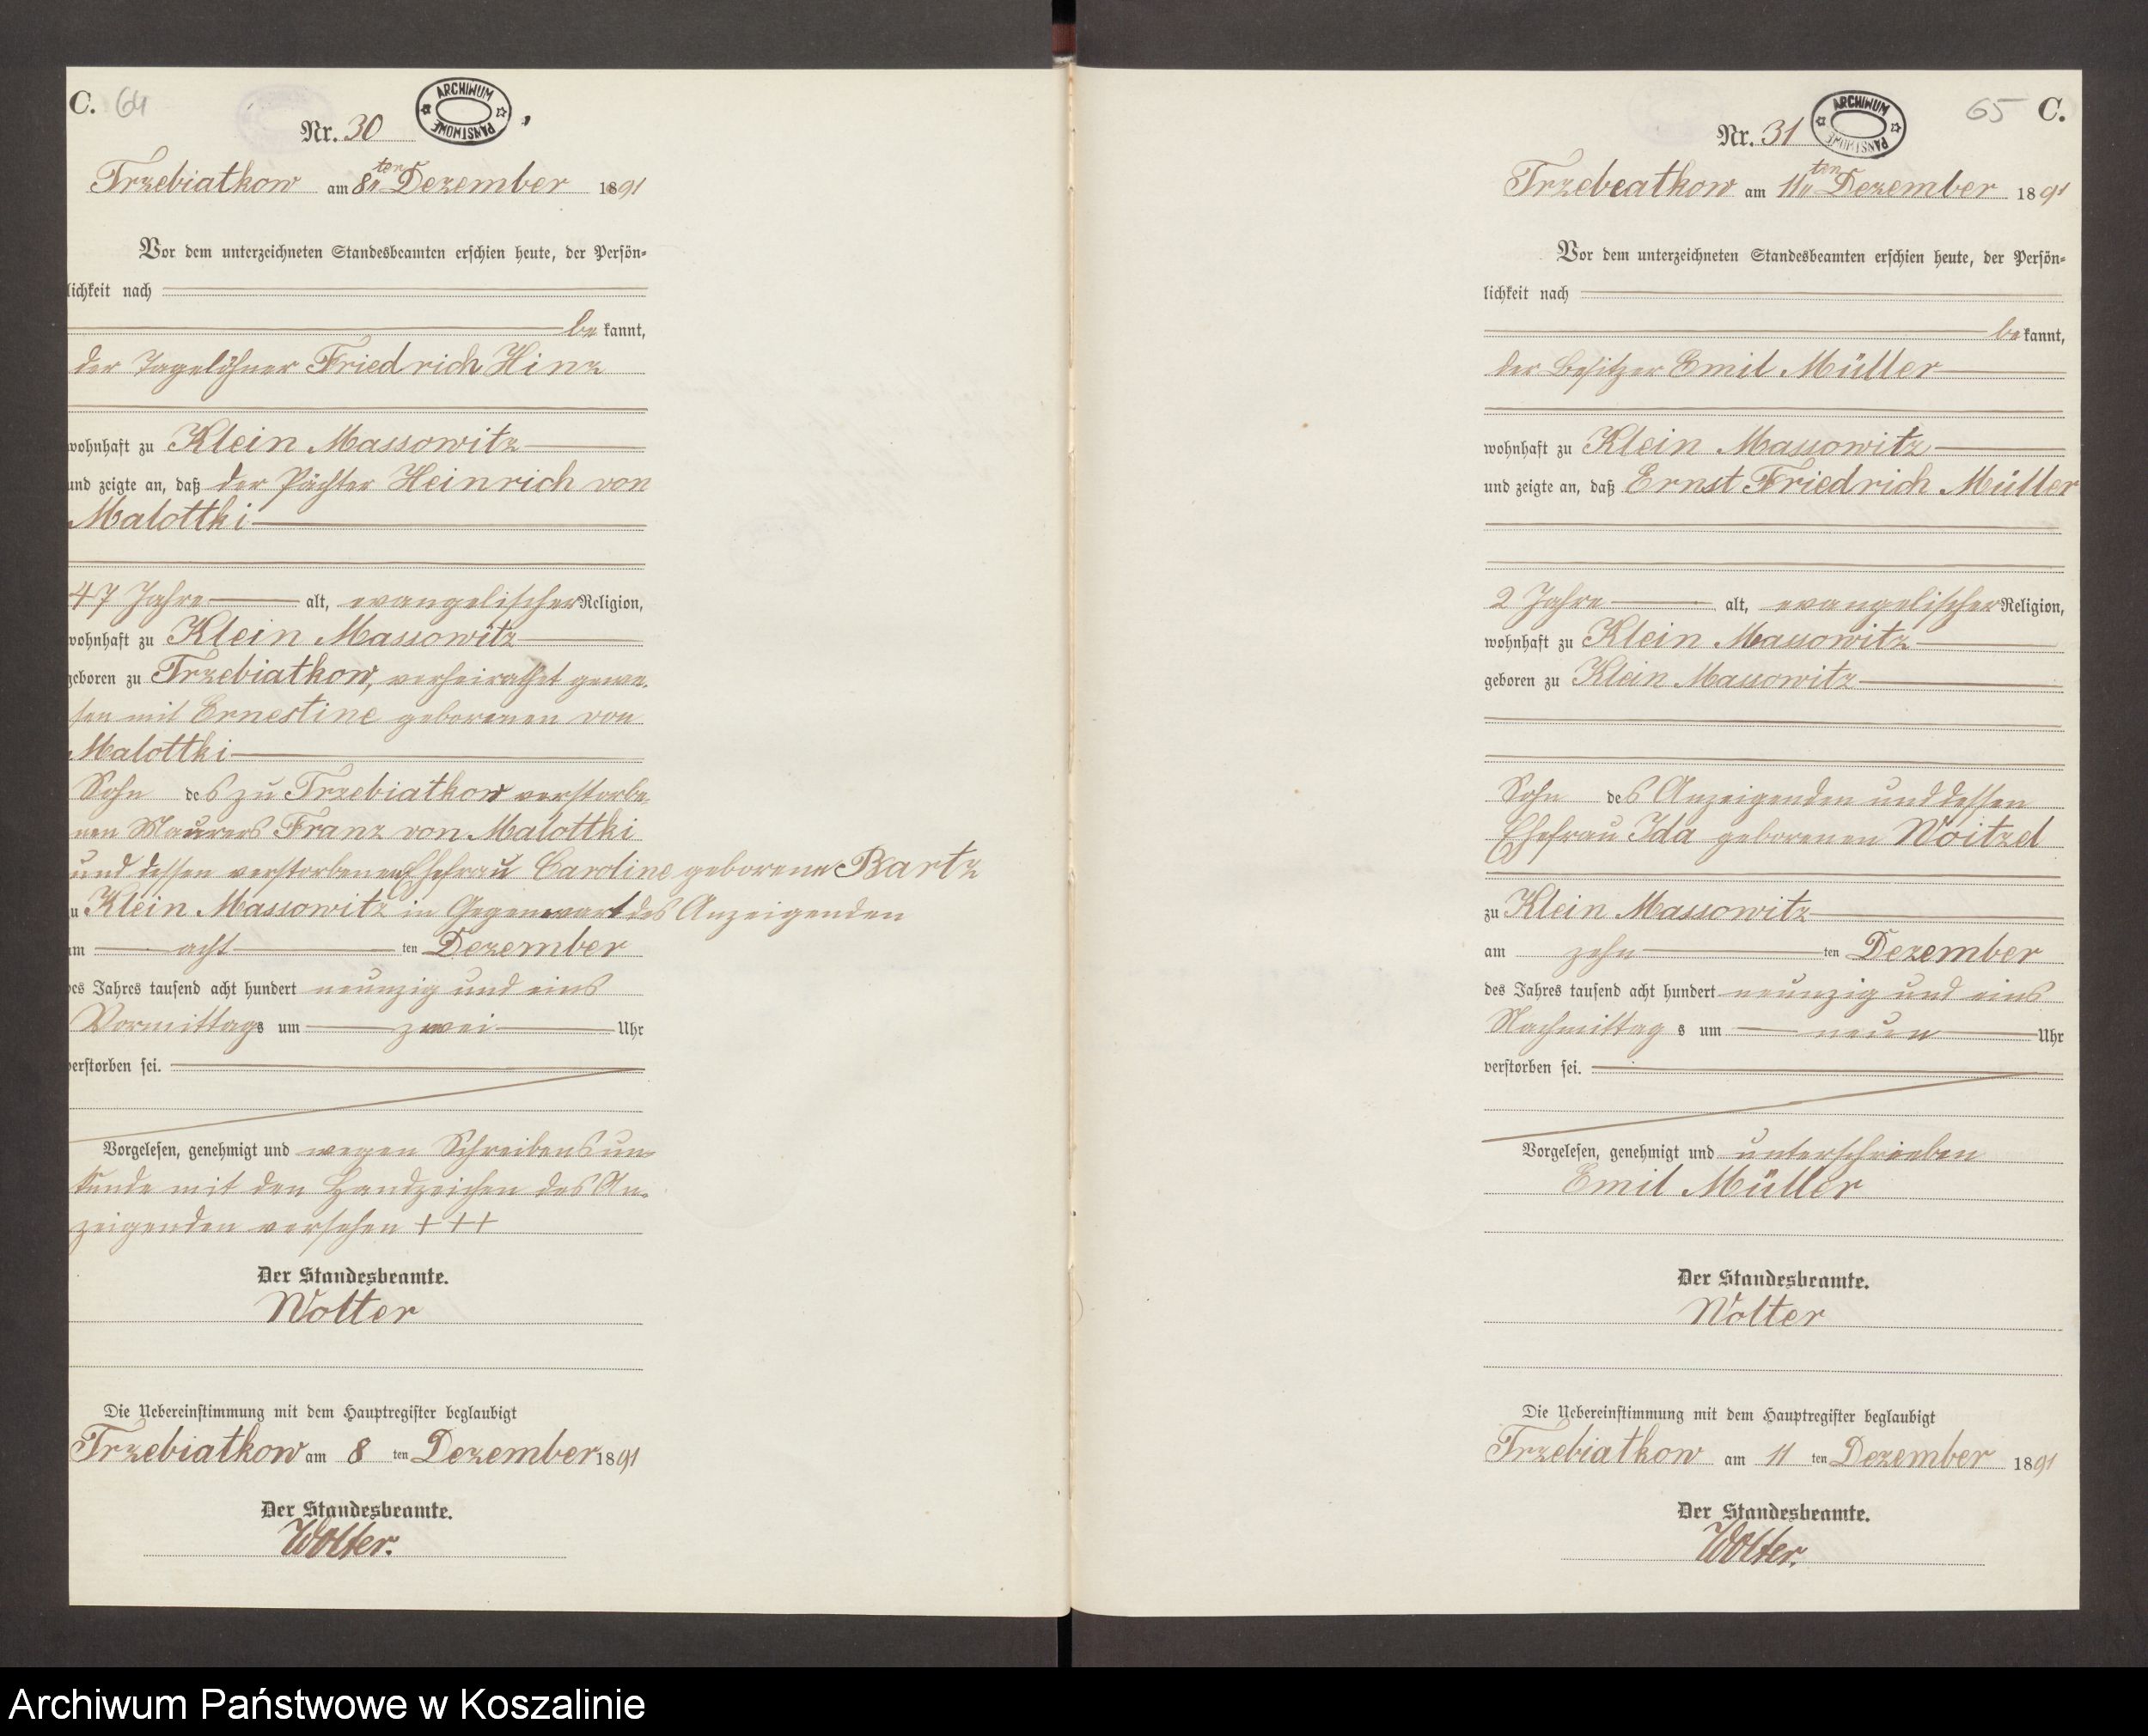 C. 64
ARCHIWUM PAŃSTWOWE
Nr. 30
Trzebiatkow am 8ten Dezember 1891
Vor dem unterzeichneten Standesbeamten erschien heute, der Persön-
lichkeit nach
be kannt,
der Tagelöhner Friedrich Hinz
wohnhaft zu Klein Massowitz
und zeigte an, daß der Pächter Heinrich von
Malottki
47 Jahre alt, evangelischer Religion,
wohnhaft zu Klein Massowitz
geboren zu Trzebiatkow, verheirathet gewe-
sen mit Ernestine geborenen von
Malottki
Sohn des zu Trzebiatkow verstorbe-
nen Maurers Franz von Malottki
und dessen verstorbenen Ehefrau Caroline geborene Bartz
zu Klein Massowitz in Gegenwart des Anzeigenden
am acht ten Dezember
des Jahres tausend acht hundert neunzig und eins
Vormittags um zwei Uhr
verstorben sei.
Vorgelesen, genehmigt und wegen Schreibensun-
kunde mit den Handzeichen des An-
zeigenden versehen + + +
Der Standesbeamte.
Wolter
Die Uebereinstimmung mit dem Hauptregister beglaubigt
Trzebiatkow am 8 ten Dezember 1891
Der Standesbeamte.
Wolter.
65 C.
ARCHIWUM PAŃSTWOWE
Nr. 31
Trzebeatkow am 11ten Dezember 1891
Vor dem unterzeichneten Standesbeamten erschien heute, der Persön-
lichkeit nach
be kannt,
der Besitzer Emil Müller
wohnhaft zu Klein Massowitz
und zeigte an, daß Ernst Friedrich Müller
2 Jahre alt, evangelischer Religion,
wohnhaft zu Klein Massowitz
geboren zu Klein Massowitz
Sohn des Anzeigenden und dessen
Ehefrau Ida geborenen Woitzel
zu Klein Massowitz
am zehn ten Dezember
des Jahres tausend acht hundert neunzig und eins
Nachmittag s um neun Uhr
verstorben sei.
Vorgelesen, genehmigt und unterschrieben
Emil Müller
Der Standesbeamte.
Wolter
Die Uebereinstimmung mit dem Hauptregister beglaubigt
Trzebiatkow am 11 ten Dezember 1891
Der Standesbeamte.
Wolter.
Archiwum Państwowe w Koszalinie